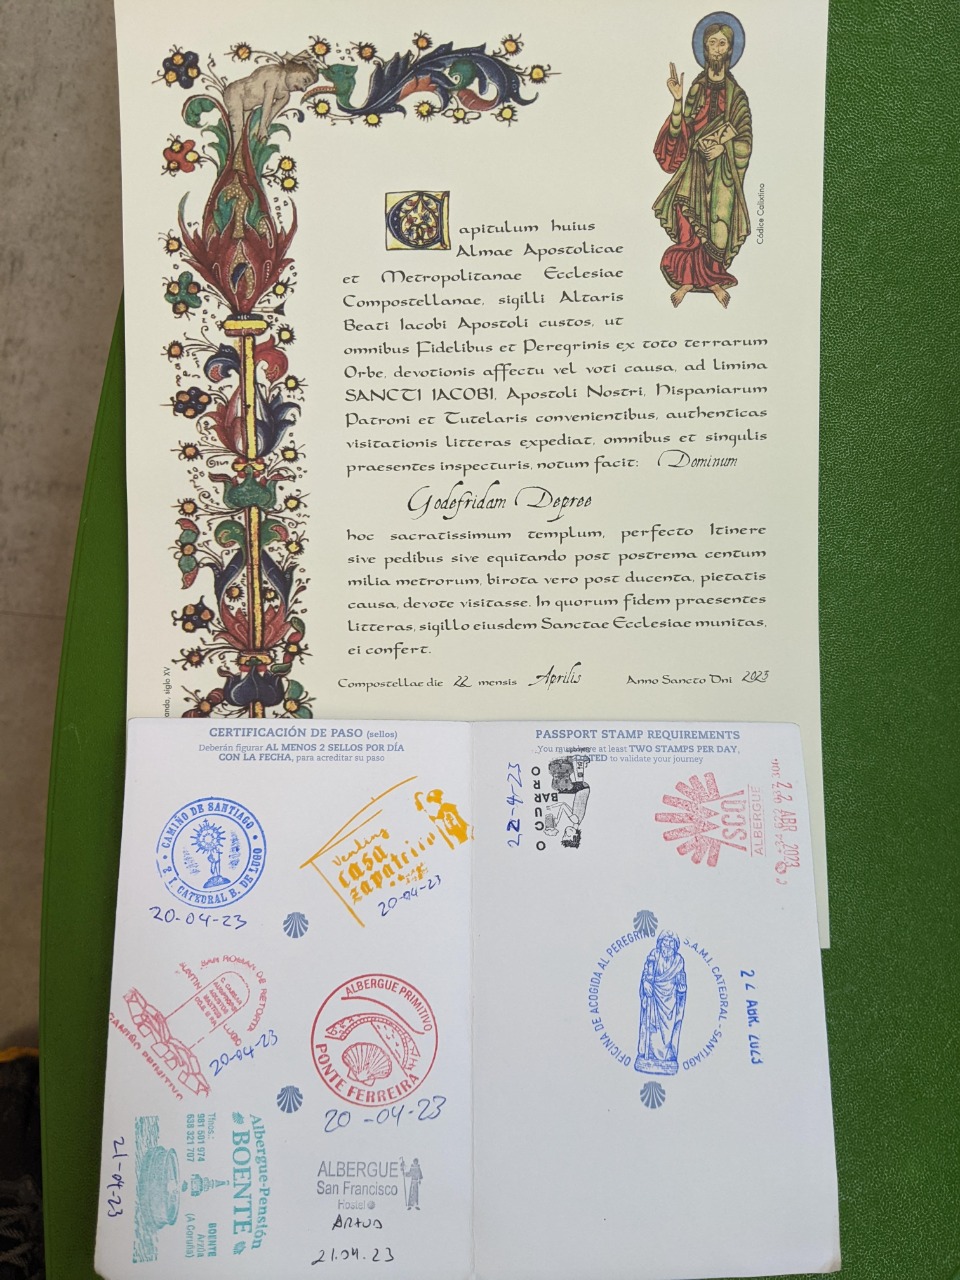 Códice Calixtino
Capitulum huius
Almae Apostolicae
et Metropolitanae Ecclesiae
Compostellanae, sigilli Altaris
Beati Iacobi Apostoli custos, ut
omnibus Fidelibus et Peregrinis ex toto terrarum
Orbe, devotionis affectu vel voti causa, ad limina
SANCTI IACOBI, Apostoli Nostri, Hispaniarum
Patroni et Tutelaris convenientibus, authenticas
visitationis litteras expediat, omnibus et singulis
praesentes inspecturis, notum facit: Dominum
Godefridam Depree
hoc sacratissimum templum, perfecto Itinere
sive pedibus sive equitando post postrema centum
milia metrorum, birota vero post ducenta, pietatis
causa, devote visitasse. In quorum fidem praesentes
litteras, sigillo eiusdem Sanctae Ecclesiae munitas,
ei confert.
Compostellae die 22 mensis Aprilis Anno Sancto Dni 2023
siglo XV
CERTIFICACIÓN DE PASO (sellos)
Deberán figurar AL MENOS 2 SELLOS POR DÍA
CON LA FECHA, para acreditar su paso
CAMIÑO DE SANTIAGO
S. I. CATEDRAL B. DE LUGO
20-04-23
Vending
casa
zapateiro
20-04-23
SAN ROMAN DE RETORTA
LUGO
CAMIÑO PRIMITIVO
20-04-23
ALBERGUE PRIMITIVO
PONTE FERREIRA
20-04-23
Albergue-Pensión
BOENTE
Tfnos.:
981 501 974
638 321 707
BOENTE
Arzúa
(A Coruña)
21-04-23
ALBERGUE
San Francisco
Hostel
21.04.23
PASSPORT STAMP REQUIREMENTS
You must have at least TWO STAMPS PER DAY,
DATED to validate your journey
22-4-23
BAR
O CURRO
SCQ
ALBERGUE
22 ABR 2023
OFICINA DE ACOGIDA AL PEREGRINO
S.A.M.I. CATEDRAL - SANTIAGO
22 ABR. 2023